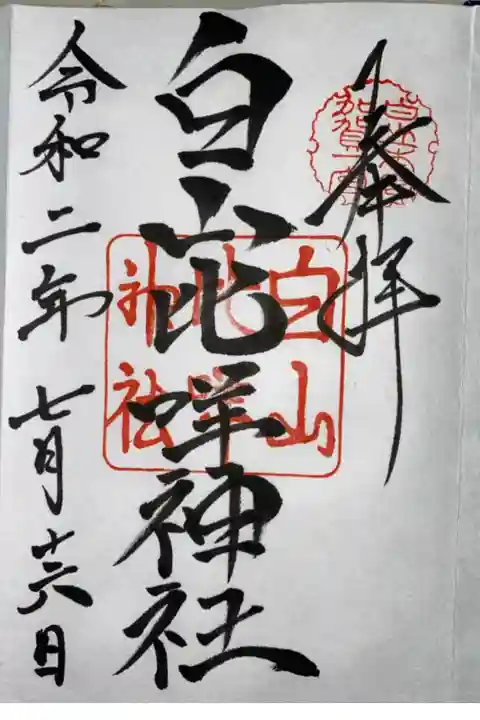 奉拝
白山本宮
加賀一宮
白山比咩神社
白山
比咩
神社
令和二年七月十六日